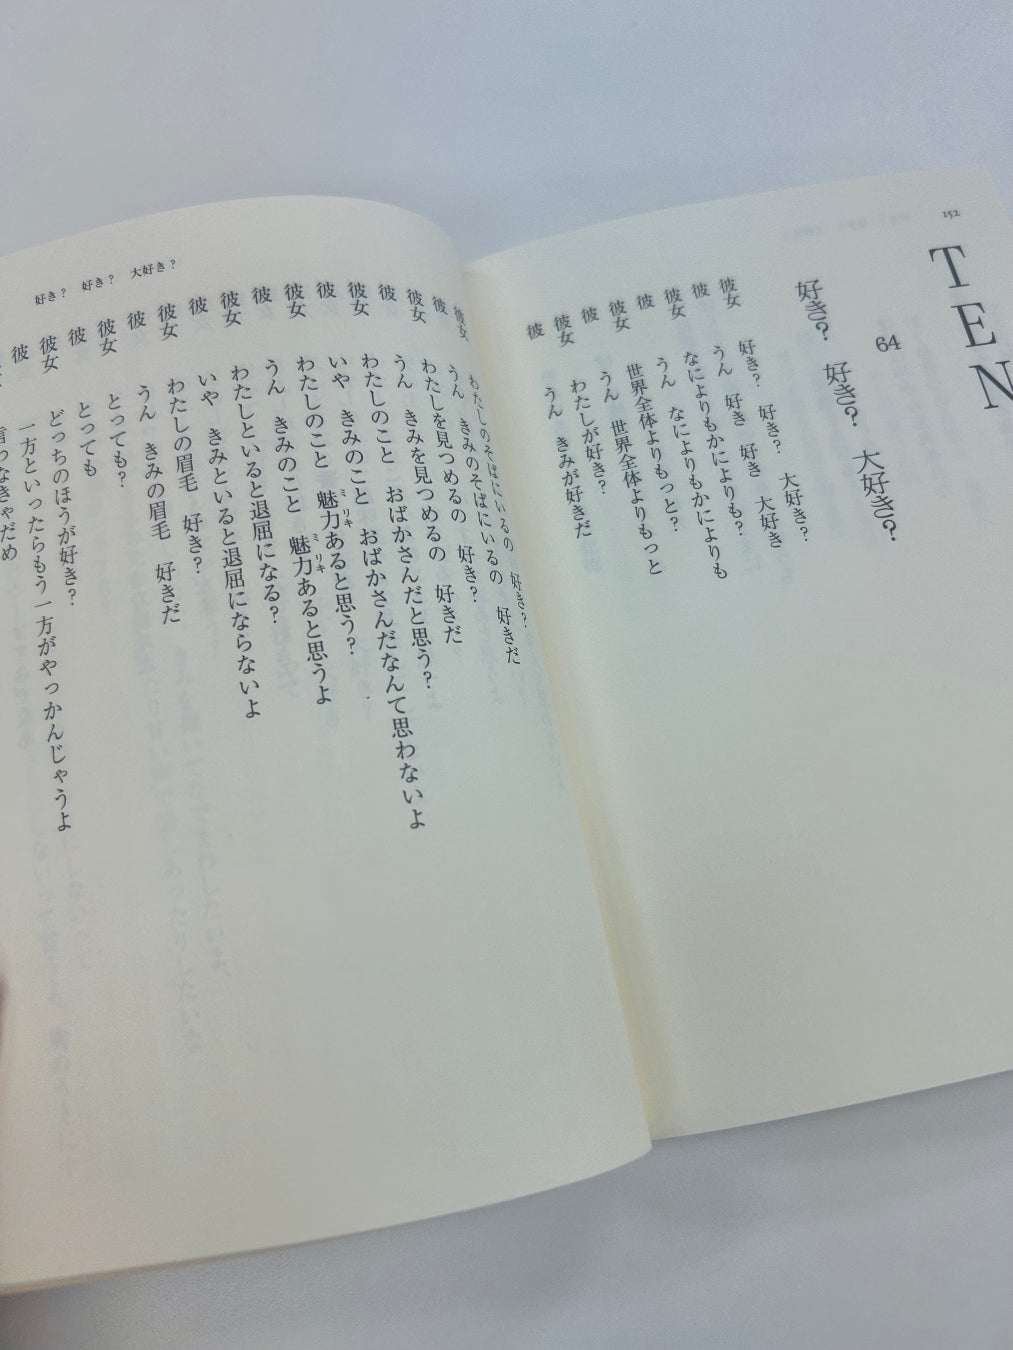 152
TEN
64
好き?　好き?　大好き?
彼女　好き?　好き?　大好き?
彼　うん　好き　好き　大好き
彼女　なによりもかによりも?
彼　うん　なによりもかによりも
彼女　世界全体よりもっと?
彼　うん　世界全体よりもっと
彼女　わたしが好き?
彼　うん　きみが好きだ
好き?　好き?　大好き?
彼女　わたしのそばにいるの　好き?
彼　うん　きみのそばにいるの　好きだ
彼女　わたしを見つめるの　好き?
彼　うん　きみを見つめるの　好きだ
彼女　わたしのこと　おばかさんだと思う?
彼　いや　きみのこと　おばかさんだなんて思わないよ
彼女　わたしのこと　魅力あると思う?
彼　うん　きみのこと　魅力あると思うよ
彼女　わたしといると退屈になる?
彼　いや　きみといると退屈にならないよ
彼女　わたしの眉毛　好き?
彼　うん　きみの眉毛　好きだ
彼女　とっても?
彼　とっても
彼女　どっちのほうが好き?
彼　一方といったらもう一方がやっかんじゃうよ
言わなきゃだめ